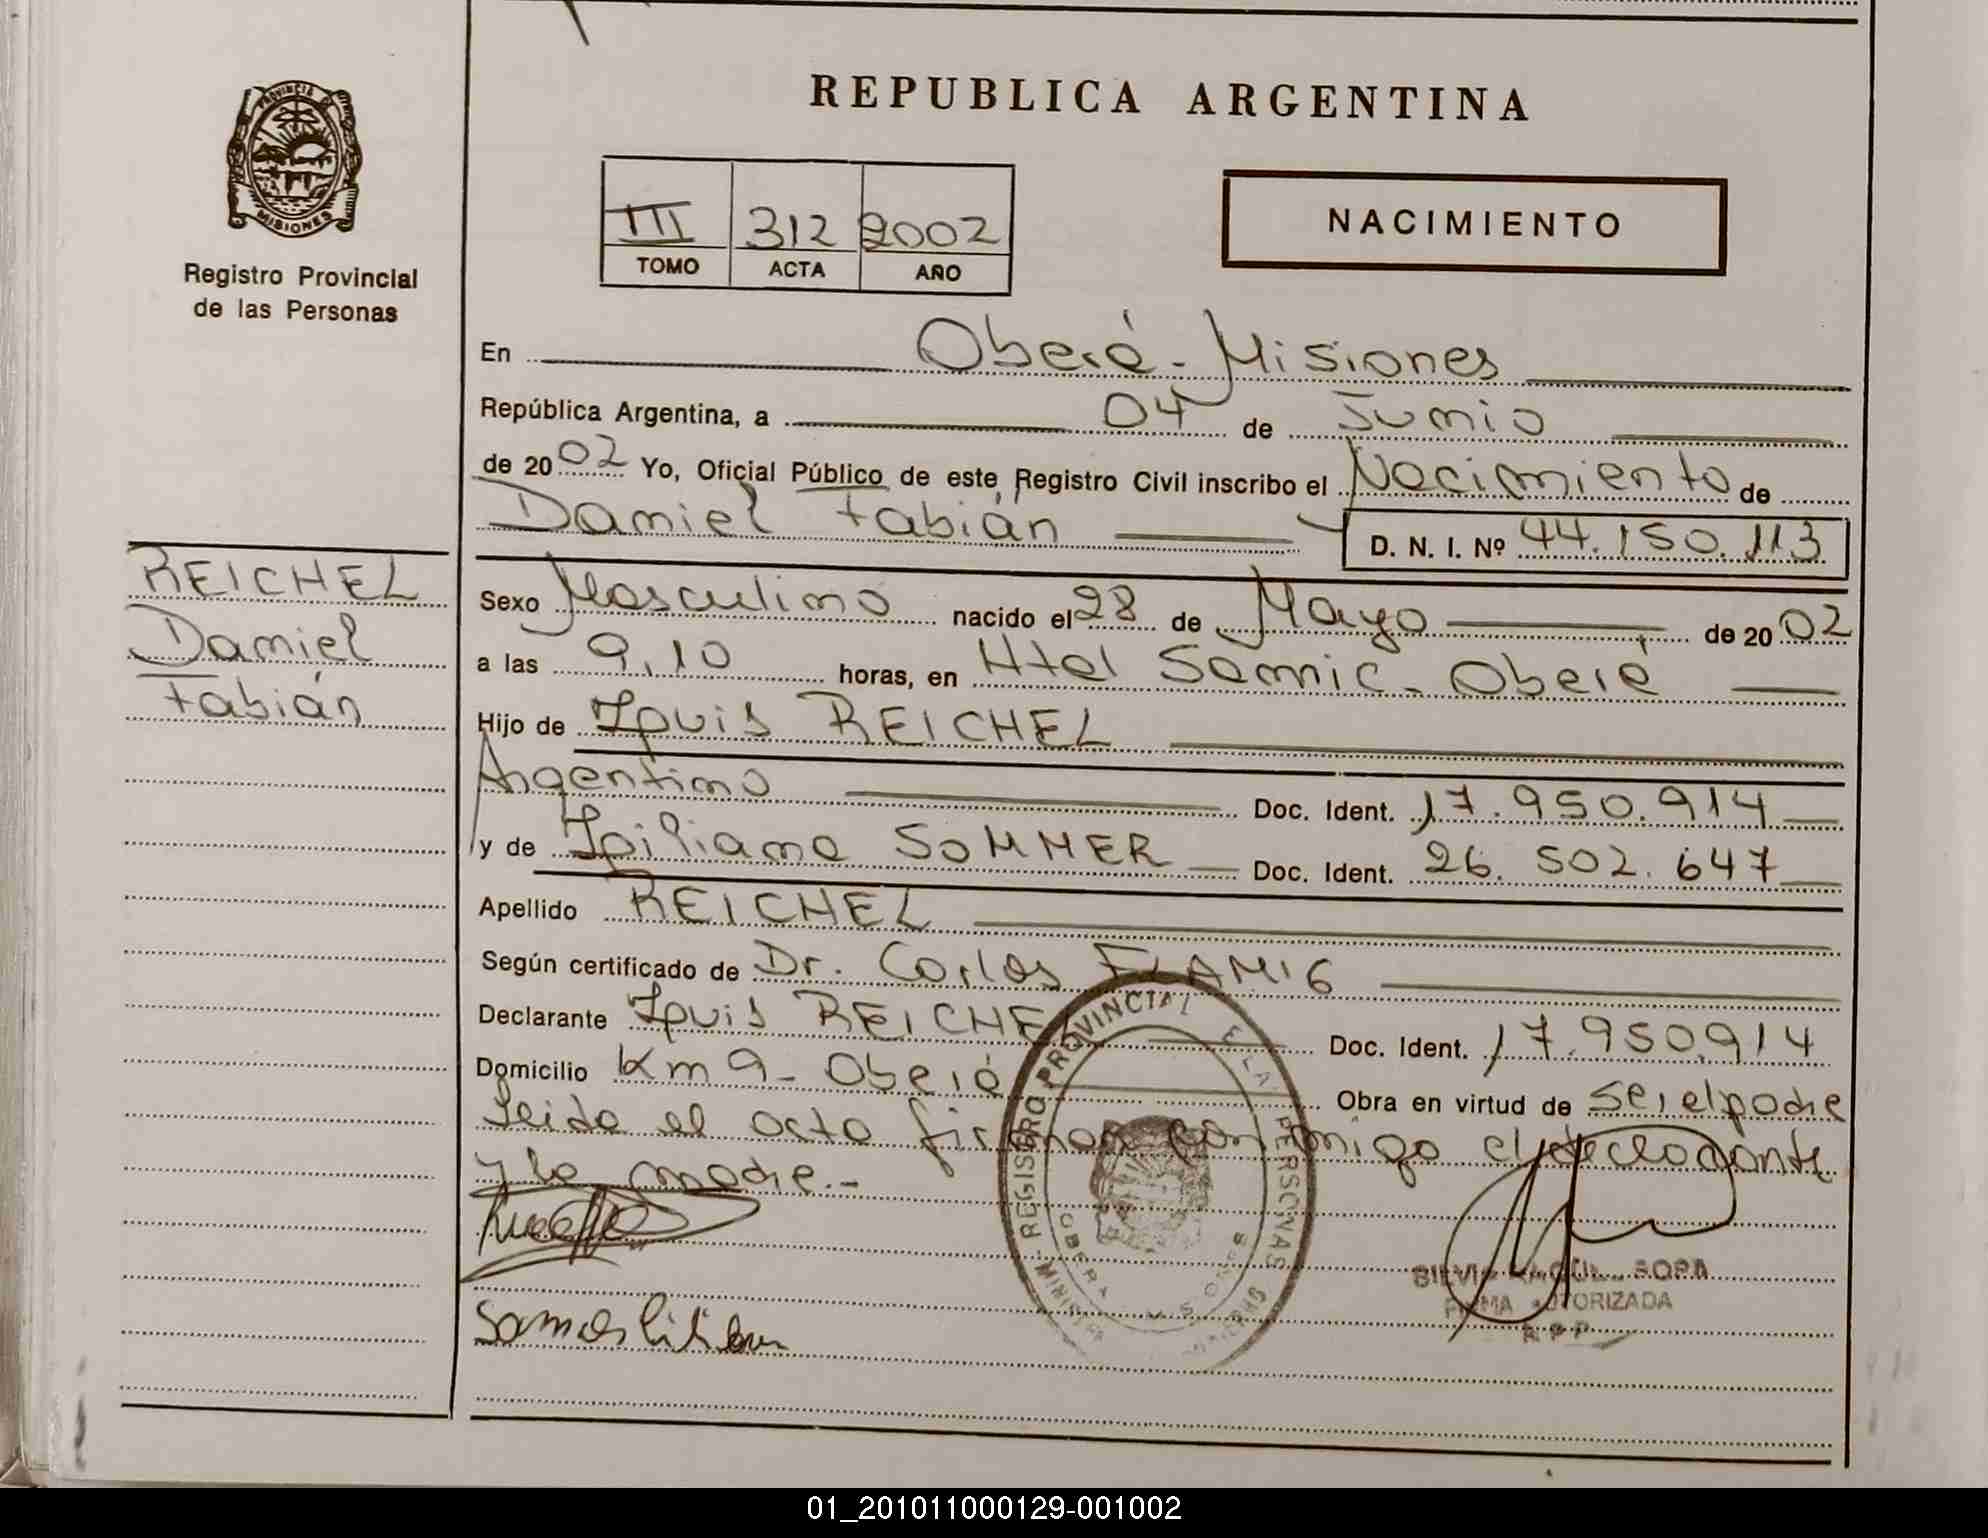 REPUBLICA ARGENTINA
PROVINCIA DE
MISIONES
Registro Provincial
de las Personas
III 312 2002
TOMO ACTA AÑO
NACIMIENTO
En Oberá - Misiones
República Argentina, a 04 de Junio
de 2002 Yo, Oficial Público de este Registro Civil inscribo el Nacimiento de
Daniel Fabián D. N. I. Nº 44.150.113
REICHEL
Daniel
Fabián
Sexo Masculino nacido el 28 de Mayo de 2002
a las 9,10 horas, en Htal Samic - Oberá
Hijo de Luis REICHEL
Argentino Doc. Ident. 17.950.914
y de Liliana SOMMER Doc. Ident. 26.502.647
Apellido REICHEL
Según certificado de Dr. Carlos
Declarante Luis REICHEL Doc. Ident. 17.950.914
Domicilio Km 9 - Oberá Obra en virtud de ser el padre
Leida el acta firman conmigo el declarante
y la madre.-
REGISTRO PROVINCIAL DE LAS PERSONAS
OBERA MISIONES
FIRMA AUTORIZADA
R.P.P.
01_201011000129-001002